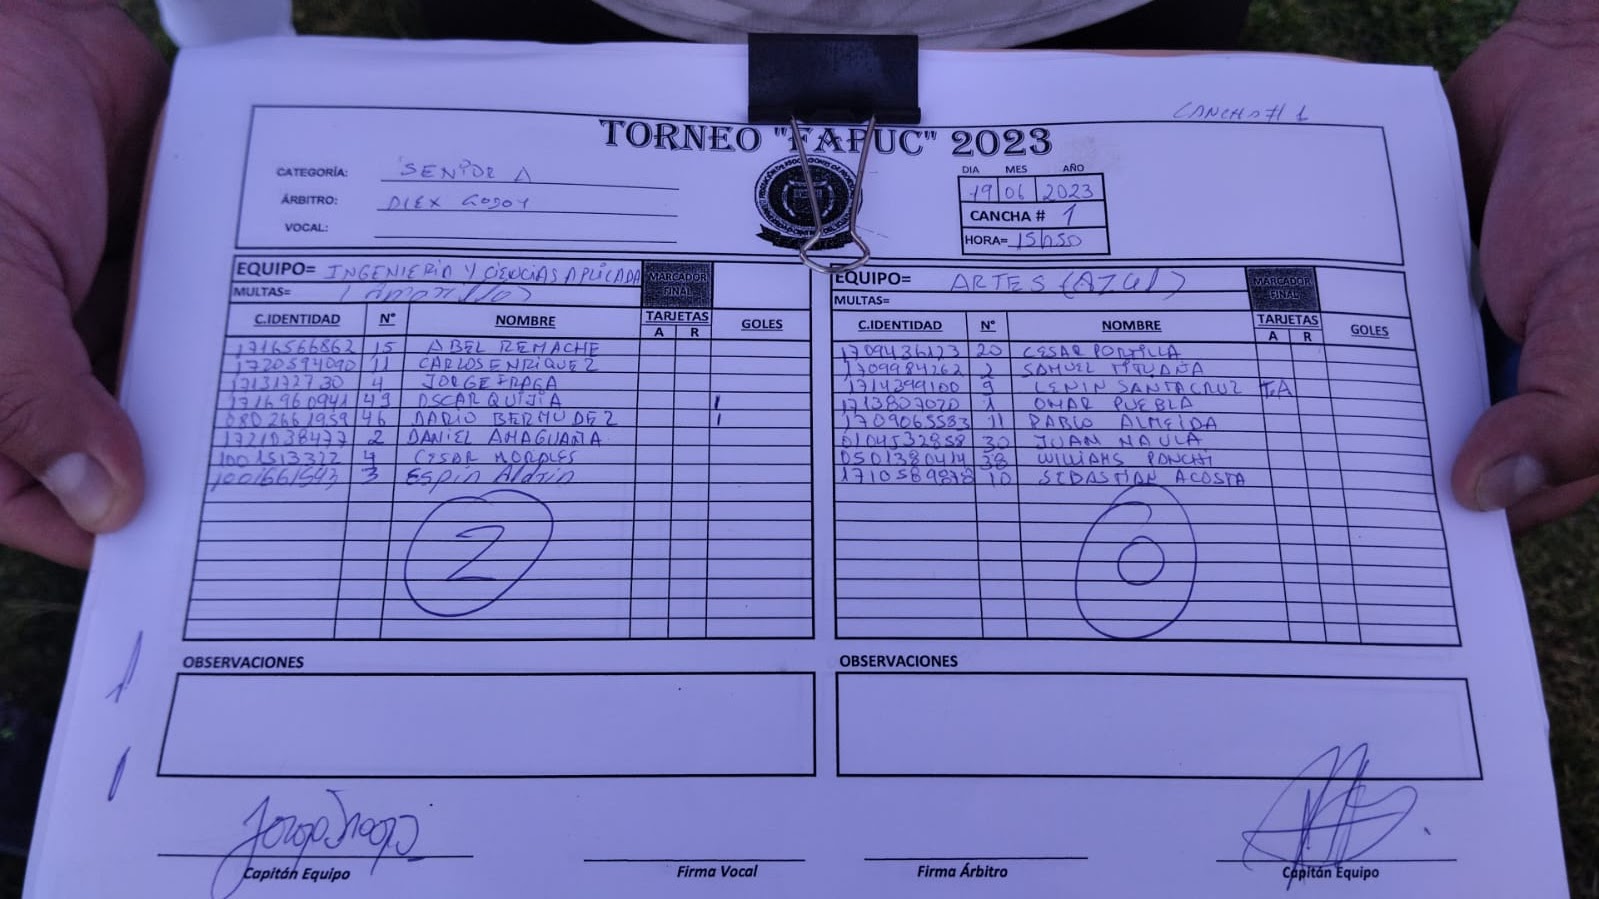 CANCHA # 1
TORNEO "FAPUC" 2023
CATEGORÍA: SENIOR A
ÁRBITRO: DIEX GODOY
VOCAL:
DIA MES AÑO
19 06 2023
CANCHA # 1
HORA= 15h50
EQUIPO= INGENIERIA Y CIENCIAS APLICADA
MULTAS= (AMARILLO)
MARCADOR FINAL
C.IDENTIDAD N° NOMBRE TARJETAS A R GOLES
1716566862 15 ABEL REMACHE
1720594090 11 CARLOS ENRIQUEZ
1713172730 4 JORGE FRAGA
1716960941 49 OSCAR QUIJIA 1
0802661959 46 DARIO BERMUDEZ 1
1721038477 2 DANIEL AMAGUAÑA
1001513322 4 CESAR MORALES
1001661593 3 Espin Aladin
2
OBSERVACIONES
EQUIPO= ARTES (AZUL)
MULTAS=
MARCADOR FINAL
C.IDENTIDAD N° NOMBRE TARJETAS A R GOLES
1709436123 20 CESAR PORTILLA
1709984262 2 SAMUEL TITUAÑA
1714399100 9 LENIN SANTACRUZ TA
1713807020 1 OMAR PUEBLA
1709065583 11 PABLO ALMEIDA
0104532858 30 JUAN NAULA
0501380414 38 WILLIAMS PANCHI
1710569818 10 SEBASTIAN ACOSTA
0
OBSERVACIONES
Capitán Equipo
Firma Vocal
Firma Árbitro
Capitán Equipo